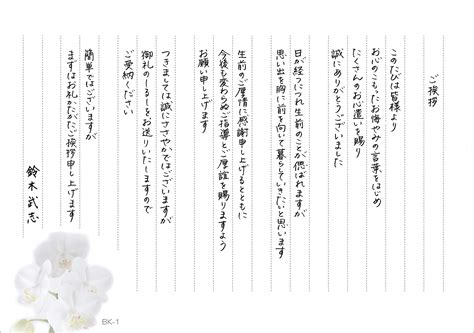 ご挨拶
このたびは皆様より
お心のこもったお悔やみの言葉をはじめ
たくさんのお心遣いを賜り
誠にありがとうございました
日が経つにつれ生前のことが偲ばれますが
思い出を胸に前を向いて暮らしていきたいと思います
生前のご厚情に感謝申し上げるとともに
今後も変わらぬご指導とご厚誼を賜りますよう
お願い申し上げます
つきましては誠にささやかではございますが
御礼のしるしをお送りいたしますので
ご受納ください
簡単ではございますが
まずはお礼かたがたご挨拶申し上げます
鈴木武志
BK-1